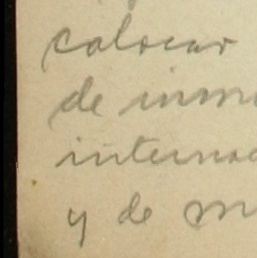 colocar
de inm
interna
y de m